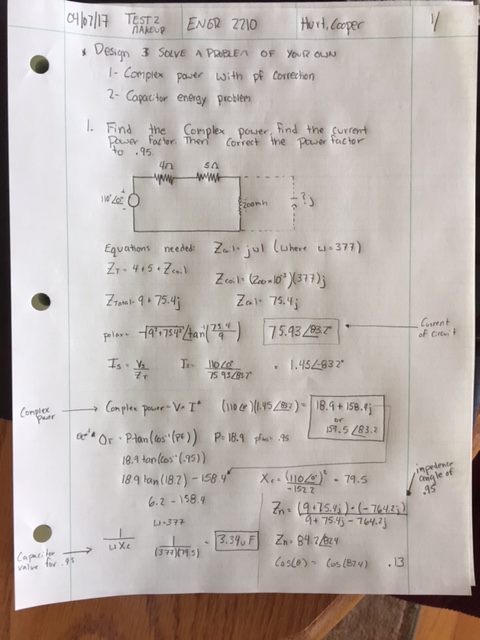 04/07/17 TEST 2 MAKEUP ENGR 2210 Hurt, Cooper 1/
* Design & SOLVE A PROBLEM OF YOUR OWN
1- Complex power with pf correction
2- Capacitor energy problem
1. Find the Complex power, find the current
Power factor. Then correct the power factor
to .95
4Ω 5Ω
110∠0° 200mh ? j
Equations needed: Zcoil = jwl (where ω=377)
ZT = 4+5+Zcoil Zcoil = (200×10⁻³)(377)j
ZTotal = 9+75.4j Zcoil = 75.4j
polar = √9²+75.4² ∠tan⁻¹(75.4/9) 75.93∠83.2° Current of circuit
Is = Vs/ZT = 110∠0°/75.93∠83.2° = 1.45∠83.2°
Complex power Complex power = V·I* (110∠0°)(1.45∠83.2) = 18.9+158.4j
or
159.5∠83.2
P tan(cos⁻¹(Pf)) P=18.9 .95
18.9 tan(cos⁻¹(.95))
18.9 tan(18.2) - 158.4 Xc = (110∠0°)²/-152.2 = 79.5
6.2 - 158.4
impedence angle of .95
Zn = (9+75.4j)·(-764.2j)/9+75.4j-764.2j
ω=377
Capacitor value for .95 1/ωXc 1/(377)(79.5) = 3.34uF
Zn = 84.2∠82.4
Cos(θ) = Cos(82.4) .13